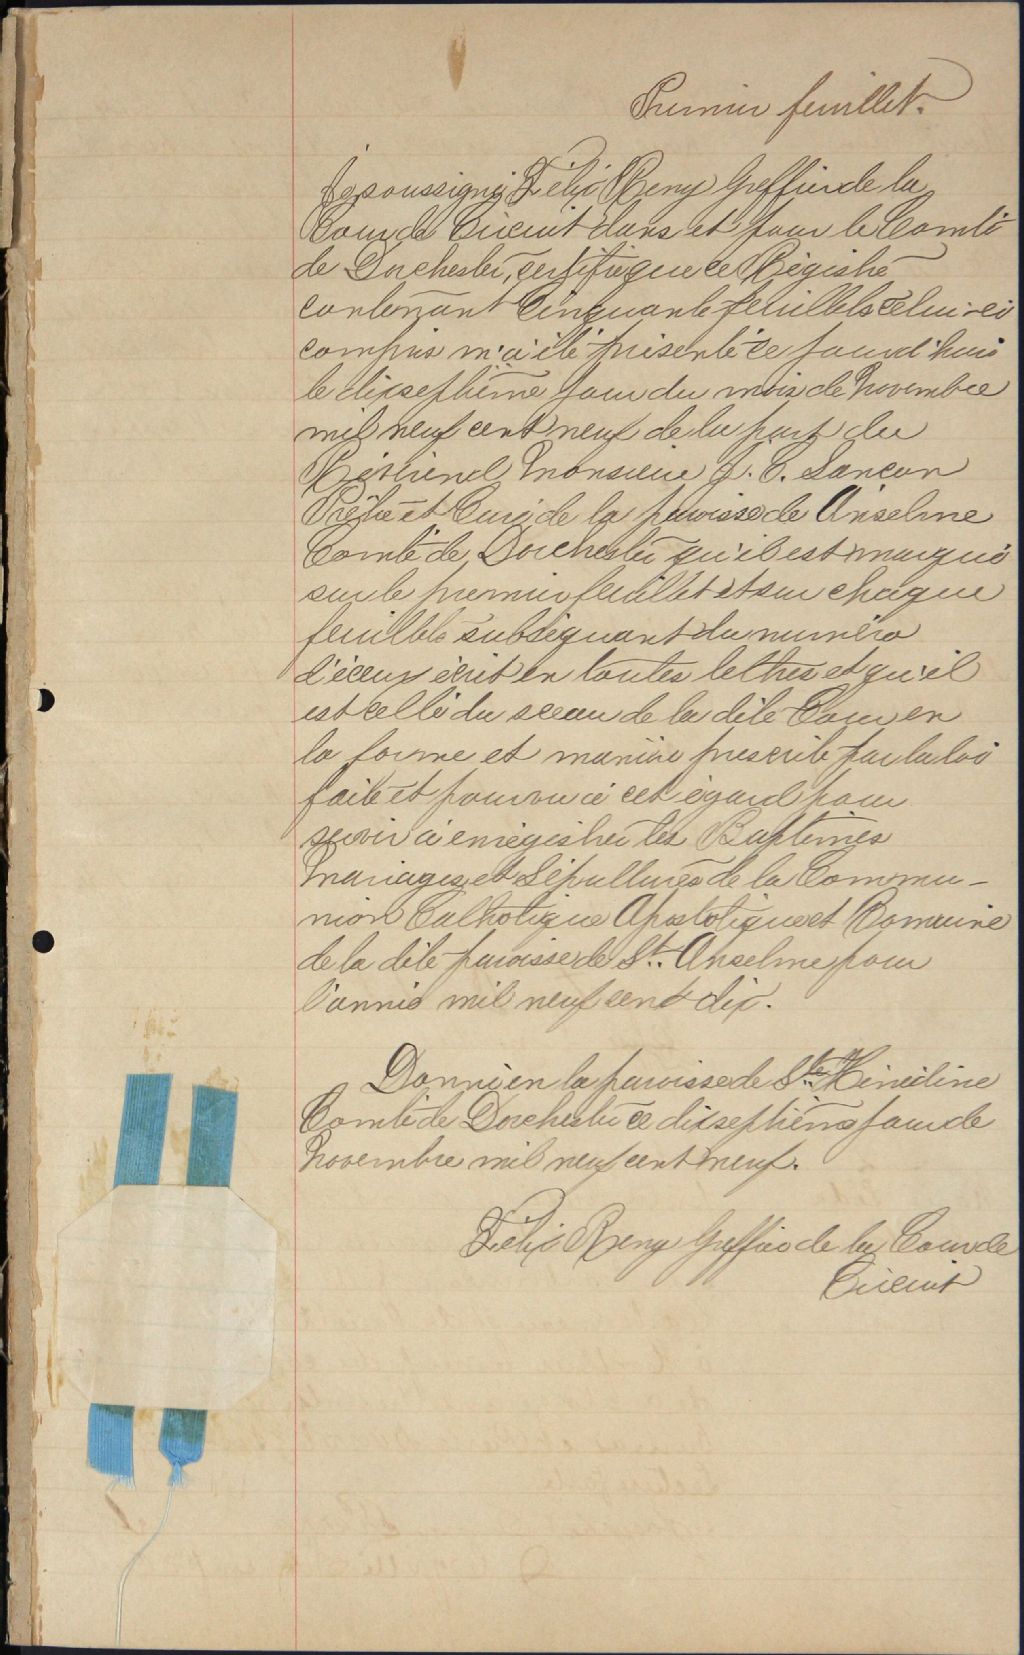 Premier feuillet.
Je soussigné, Félix Remy Greffier de la
Cour de Circuit dans et pour le Comté
de Dorchester, certifie que ce Régistre
contenant Cinquante feuillets celui-ci
compris m'a été présenté ce jourd'hui
le dixseptième jour du mois de Novembre
mil neuf cent neuf de la part du
Révérend Monsieur J. C.
Prêtre et Curé de la paroisse de Anselme
Comté de Dorchester qu'il est marqué
sur le premier feuillet et sur chaque
feuillets subséquant du numéro
d'iceux écrit en toutes lettres et qu'il
est cellé du sceau de la dite Cour en
la forme et manière prescrite par la loi
faite et pourvu à cet égard pour
servir à enrégistrer les Baptêmes
Mariages et Sépultures de la Commu-
nion Catholique Apostolique et Romaine
de la dite paroisse de St. Anselme pour
l'année mil neuf cent dix.
Donné en la paroisse de Ste Hénédine
Comté de Dorchester ce dixseptième jour de
Novembre mil neuf cent neuf.
Félix Remy Greffier de la Cour de
Circuit